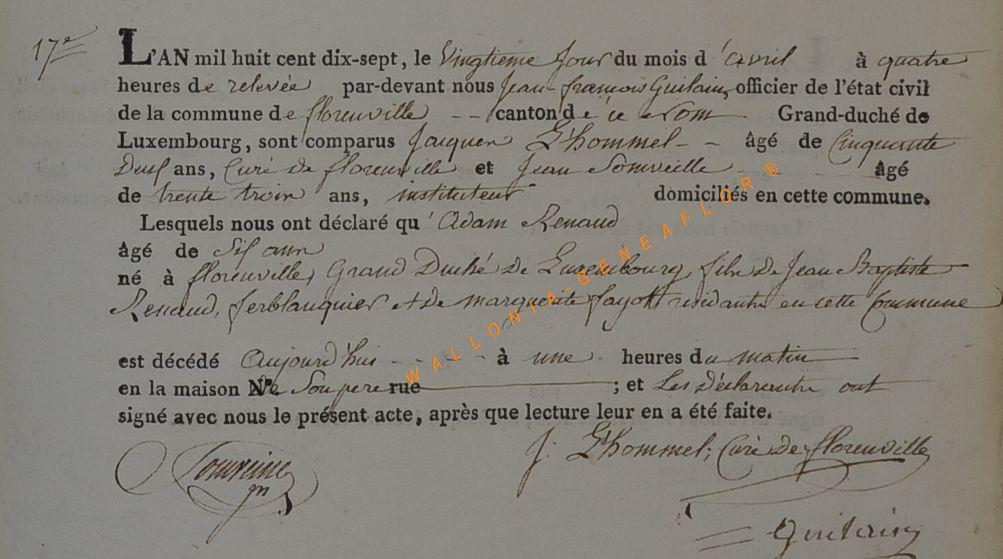 17e L'AN mil huit cent dix-sept, le Vingtieme Jour du mois d'avril à quatre
heures de relevée par-devant nous Jean françois Guilain, officier de l'état civil
de la commune de florenville - - canton de ce Nom Grand-duché de
Luxembourg, sont comparus Jacques L'hommel - - âgé de Cinquante
Deux ans, Curé de florenville et Jean - - - âgé
de trente trois ans, instituteur domiciliés en cette commune.
Lesquels nous ont déclaré qu'Adam Renaud
âgé de Six ans
né à florenville, Grand Duché de Luxembourg, fils de Jean Baptiste
Renaud, ferblanquier et de marguerite fayott residants en cette Commune
est décédé aujourd'hui - - - - à une heures du matin
en la maison de Son pere rue ; et Les Déclarants ont
signé avec nous le présent acte, après que lecture leur en a été faite.
J. L'hommel, Curé de florenville
Guilain
WALLONIA-GENEAFLOR®